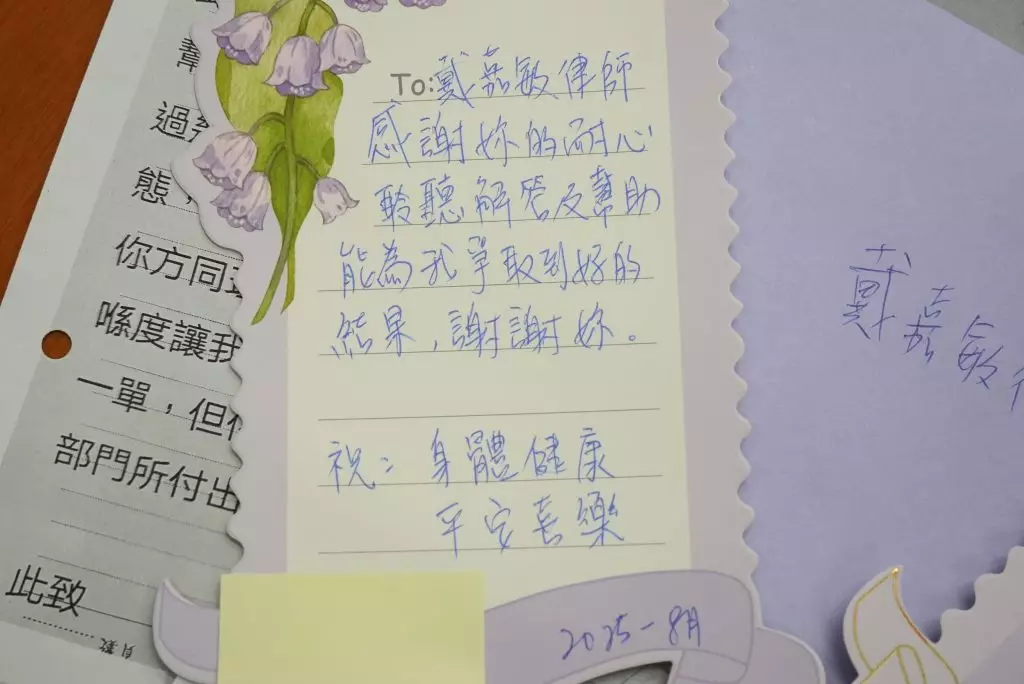 To:戴嘉敏律師
感謝妳的耐心
聆聽解答及幫助
能為我爭取到好的
結果,謝謝妳。
祝:身體健康
平安喜樂
2025-8月
戴嘉敏
幫
過
態,
你方同
喺度讓我
一單，但
部門所付出
此致
頁數